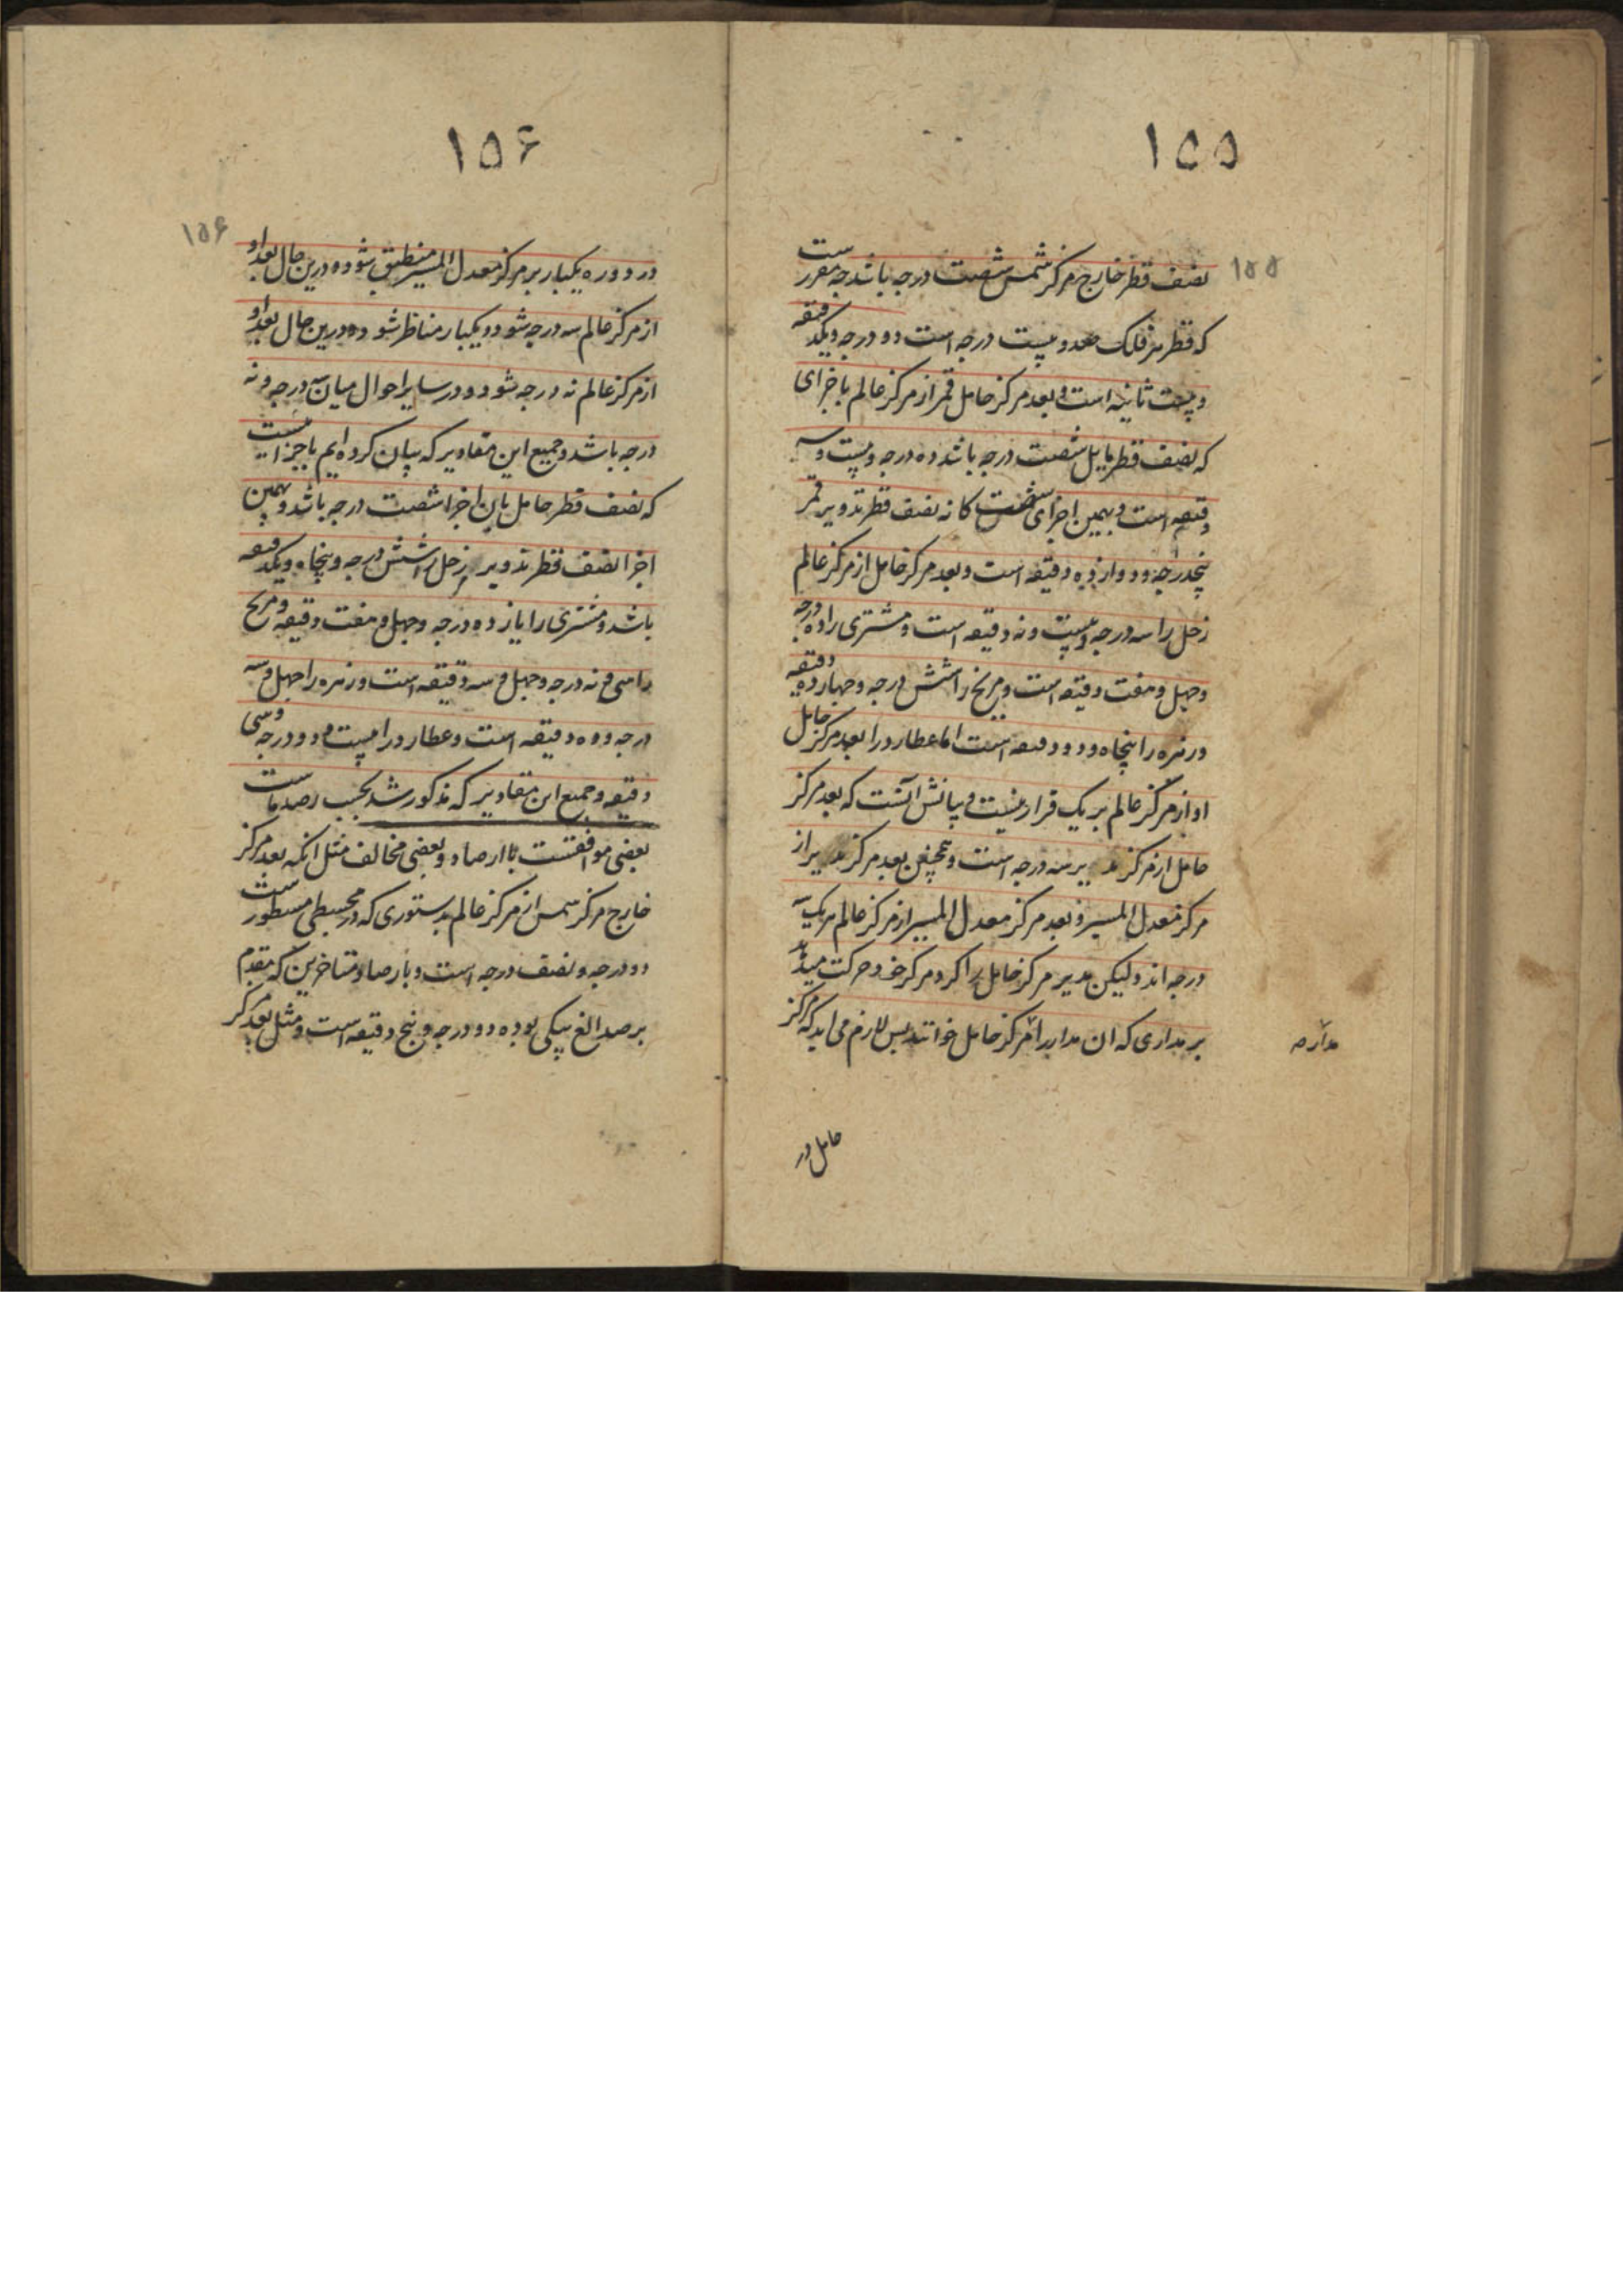 ۱۵۵
۱۵۵
نصف قطر خارج مرکز شمس شصت درجه باشد چه مقررست
که قطر هر فلک صد و بیست درجه است دو درجه و یکدقیقه
و بیست ثانیه است و بعد مرکز حامل قمر از مرکز عالم باجزای
که نصف قطر مایل شصت درجه باشد ده درجه و بیست و سه
دقیقه است و بهمین اجزای شصت کانه نصف قطر تدویر قمر
پنجدرجه و دوازده دقیقه است و بعد مرکز حامل از مرکز عالم
زحل را سه درجه و بیست و نه دقیقه است و مشتری را دو درجه
و چهل و هفت دقیقه است و مریخ را شش درجه و چهارده دقیقه
و زهره را پنجاه و دو دقیقه است اما عطارد را بعد مرکز حامل
او از مرکز عالم بر یک قرار نیست و بیانش آنست که بعد مرکز
حامل از مرکز مدیر سه درجه است و همچنین بعد مرکز مدیر از
مرکز معدل المسیر و بعد مرکز معدل المسیر از مرکز عالم هریک سه
درجه اند و لیکن مدیر مرکز حامل را کرد مرکز خود حرکت میدهد
بر مداری که ان مدار را مرکز حامل خوانند پس لازم می اید که مرکز
مدار صہ
حامل در
۱۵۶
۱۵۶
در دوره یکبار بر مرکز معدل المسیر منطبق شود و درین حال بعد او
از مرکز عالم سه درجه شود و یکبار مناظر شود و درین حال بعد او
از مرکز عالم نه درجه شود و در سایر احوال میان سه درجه و نه
درجه باشد و جمیع این مقادیر که بیان کرده ایم باجزائیست
که نصف قطر حامل بان اجزا شصت درجه باشد و بهمین
اجزا نصف قطر تدویر زحل را شش درجه و پنجاه و یکدقیقه
باشد و مشتری را یازده درجه و چهل و هفت دقیقه و مریخ
را سی و نه درجه و چهل و سه دقیقه است و زهره را چهل و سه
درجه و ده دقیقه است و عطارد را بیست و دو درجه و سی
دقیقه و جمیع این مقادیر که مذکور شد بحسب رصد ماست
بعضی موافقست با ارصاد و بعضی مخالف مثل انکه بعد مرکز
خارج مرکز شمس از مرکز عالم بدستوری که در مجسطی مسطورست
دو درجه و نصف درجه است و بارصاد متاخرین که مقدم
بر صد الغ بیکی بوده دو درجه و پنج دقیقه است و مثل بعد مرکز